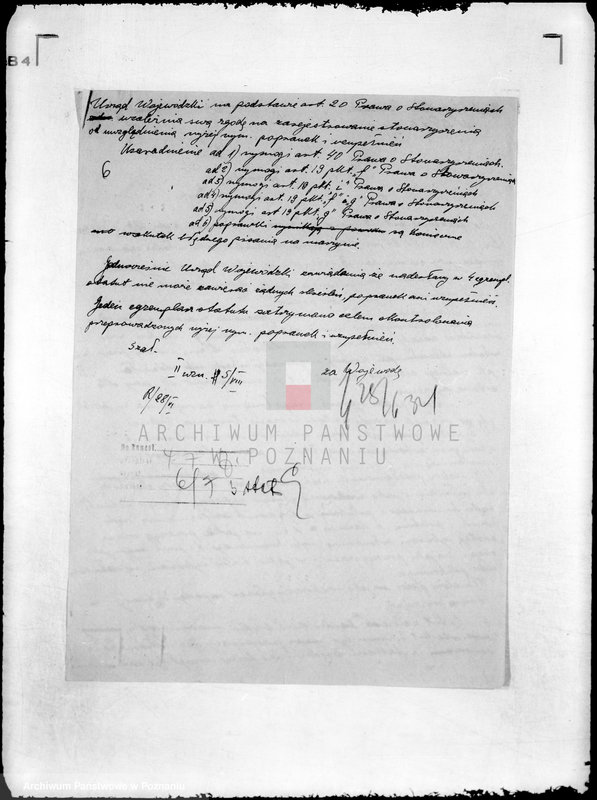 B4
Urząd Wojewódzki na podstawie art. 20 Prawa o Stowarzyszeniach
uzależnia swą zgodę na zarejestrowanie stowarzyszenia
od uwzględnienia wyżej wym. poprawek i uzupełnień
Uzasadnienie ad 1) wymogi art. 40 Prawa o Stowarzyszeniach.
6
ad 2) wymogi art. 19 pkt. f" Prawa o Stowarzyszeniach
ad 3) wymogi art. 18 pkt. i" Prawa o Stowarzyszeniach
ad 4) wymogi art. 19 pkt. "f" i g" Prawa o Stowarzyszeniach
ad 5) wymogi art 19 pkt. g" Prawa o Stowarzyszeniach
ad 6) poprawki wynikają z powodu są konieczne
wskutek błędnego pisania na maszynie.
Jednocześnie Urząd Wojewódzki zawiadamia że nadesłany w 4 egzempl.
statut nie może zawierać żadnych skreśleń, poprawek ani uzupełnień.
Jeden egzemplarz statutu zatrzymano celem skontrolowania
przeprowadzonych wyżej wym. poprawek i uzupełnień.
II wzn. 5/VIII
za Wojewodę
R/28/VI
25/6 34
ARCHIWUM PAŃSTWOWE
W POZNANIU
4 7
6/7
Archiwum Państwowe w Poznaniu